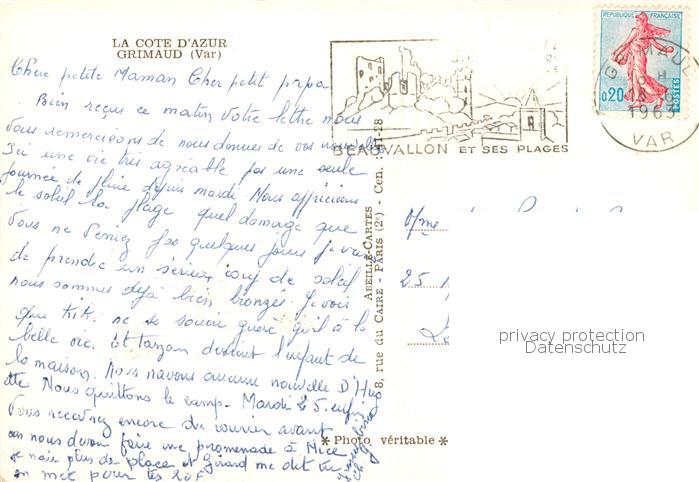 LA COTE D'AZUR
GRIMAUD (Var)
Chère petite Maman Cher petit papa
Bien reçus ce matin votre lettre nous
vous remercions de nous donner de vos nouvelles
Ici une vie très agréable pas une seule
journée de pluie depuis mardi Nous apprécions
le soleil la plage quel domage que
vous ne veniez pas quelques jours
de prendre un sérieux coup de soleil
nous sommes déjà bien bronzés. Je vois
que Kiki ne se soucie guère qu'il a la
belle vie. et tarzan devient l'enfant de
la maison. Nous navons aucune nouvelle D'Hug
ette Nous quittons le camp. Mardi 25.
Vous recevrez encore du courrier avant
car nous devons faire une promenade à Nice
je nai plus de place et Girard me dit
en met pour tes 20F
REPUBLIQUE FRANÇAISE
0,20
POSTES
GRIMAUD
18
1963
VAR
BEAUVALLON ET SES PLAGES
ABEILLE-CARTES
8, rue du CAIRE - PARIS (2e) - Cen.
Mme
25
* Photo véritable *
privacy protection
Datenschutz